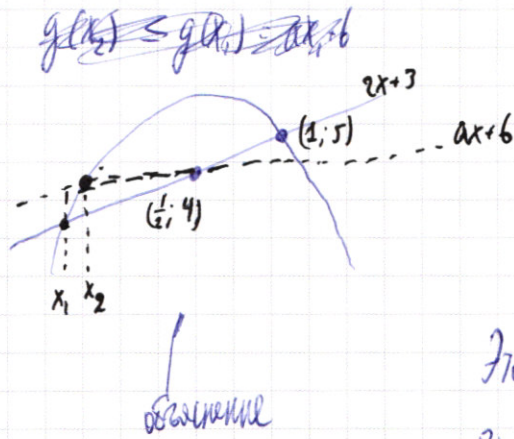 g(x₂) ≤ g(x₁) = ax₁+b
2x+3
(1; 5)
ax+b
(1/2; 4)
x₁ x₂
объяснение